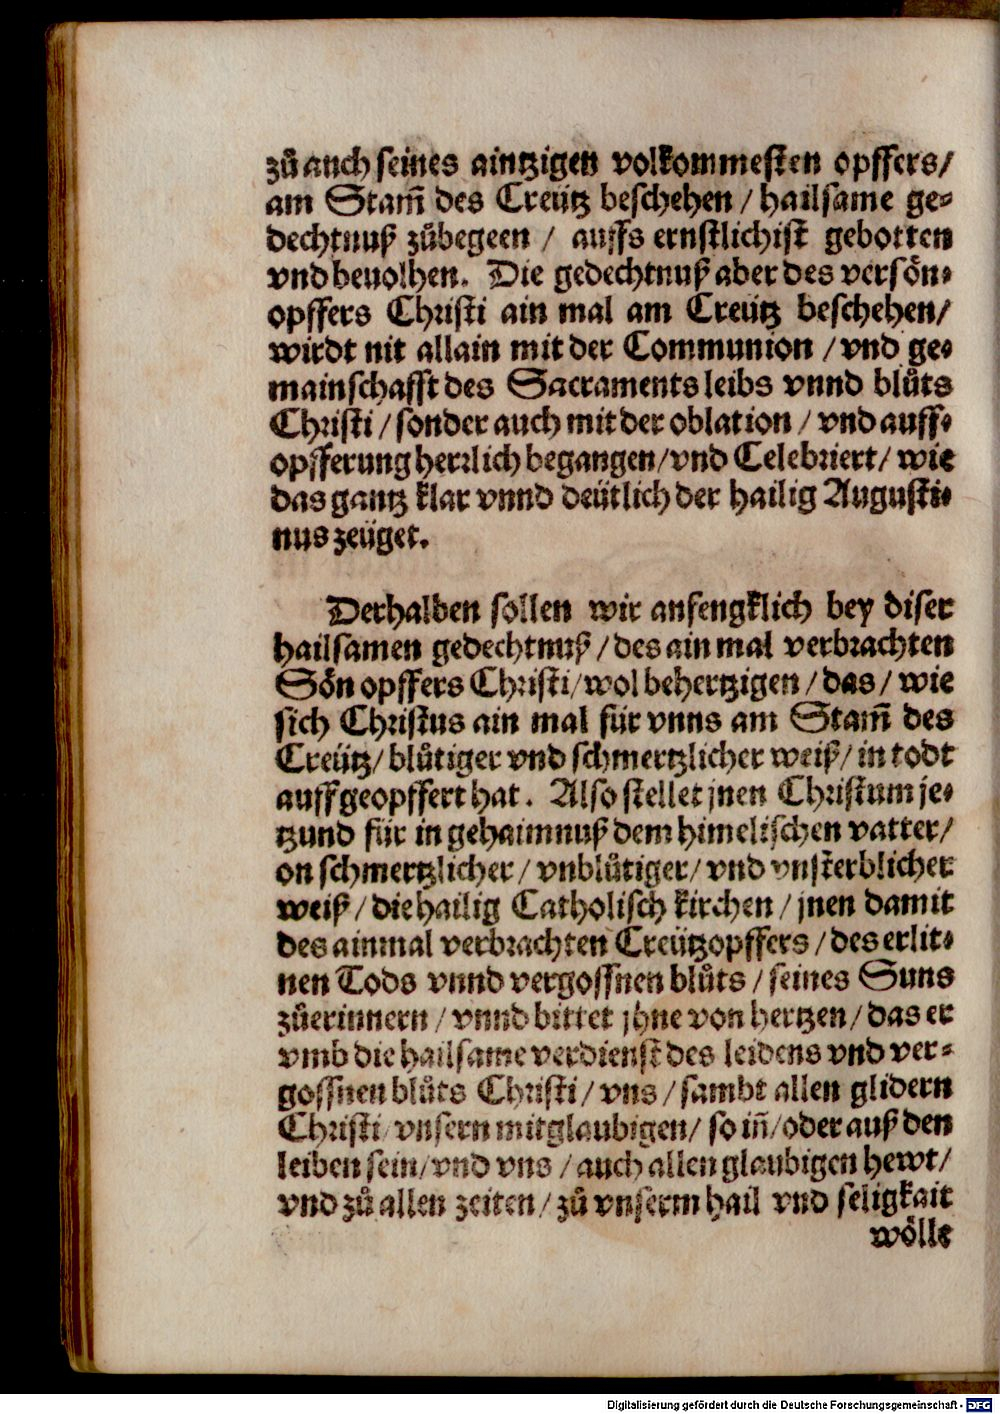 zů auch seines aintzigen volkommesten opffers/
am Stam̃ des Creütz beschehen / hailsame ge⸗
dechtnuß zůbegeen / auffs ernstlichist gebotten
vnd beuolhen. Die gedechtnuß aber des versön⸗
opffers Christi ain mal am Creütz beschehen/
wirdt nit allain mit der Communion / vnd ge⸗
mainschafft des Sacraments leibs vnnd blůts
Christi / sonder auch mit der oblation / vnd auff⸗
opfferung herrlich begangen/vnd Celebriert/ wie
das gantz klar vnnd deütlich der hailig Augusti⸗
nus zeüget.
Derhalben sollen wir anfengklich bey diser
hailsamen gedechtnuß / des ain mal verbrachten
Sön opffers Christi/wol behertzigen / das / wie
sich Christus ain mal für vnns am Stam̃ des
Creütz/ blůtiger vnd schmertzlicher weiß/ in todt
auffgeopffert hat. Also stellet jnen Christum je⸗
tzund für in gehaimnuß dem himelischen vatter/
on schmertzlicher / vnblůtiger/ vnd vnsterblicher
weiß / die hailig Catholisch kirchen / jnen damit
des ainmal verbrachten Creützopffers / des erlit⸗
nen Tods vnnd vergossnen blůts / seines Suns
zůerinnern / vnnd bittet jhne von hertzen / das er
vmb die hailsame verdienst des leidens vnd ver⸗
gossnen blůts Christi / vns / sambt allen glidern
Christi/ vnsern mitglaubigen/ so iñ/oder auß den
leiben sein/vnd vns / auch allen glaubigen hewt/
vnd zů allen zeiten / zů vnserm hail vnd seligkait
wölle
Digitalisierung gefördert durch die Deutsche Forschungsgemeinschaft - DFG